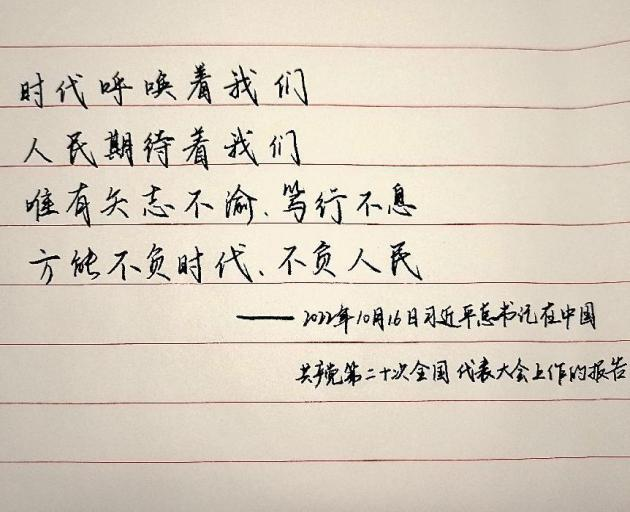 时代呼唤着我们
人民期待着我们
唯有矢志不渝、笃行不息
方能不负时代、不负人民
——2022年10月16日习近平总书记在中国
共产党第二十次全国代表大会上作的报告